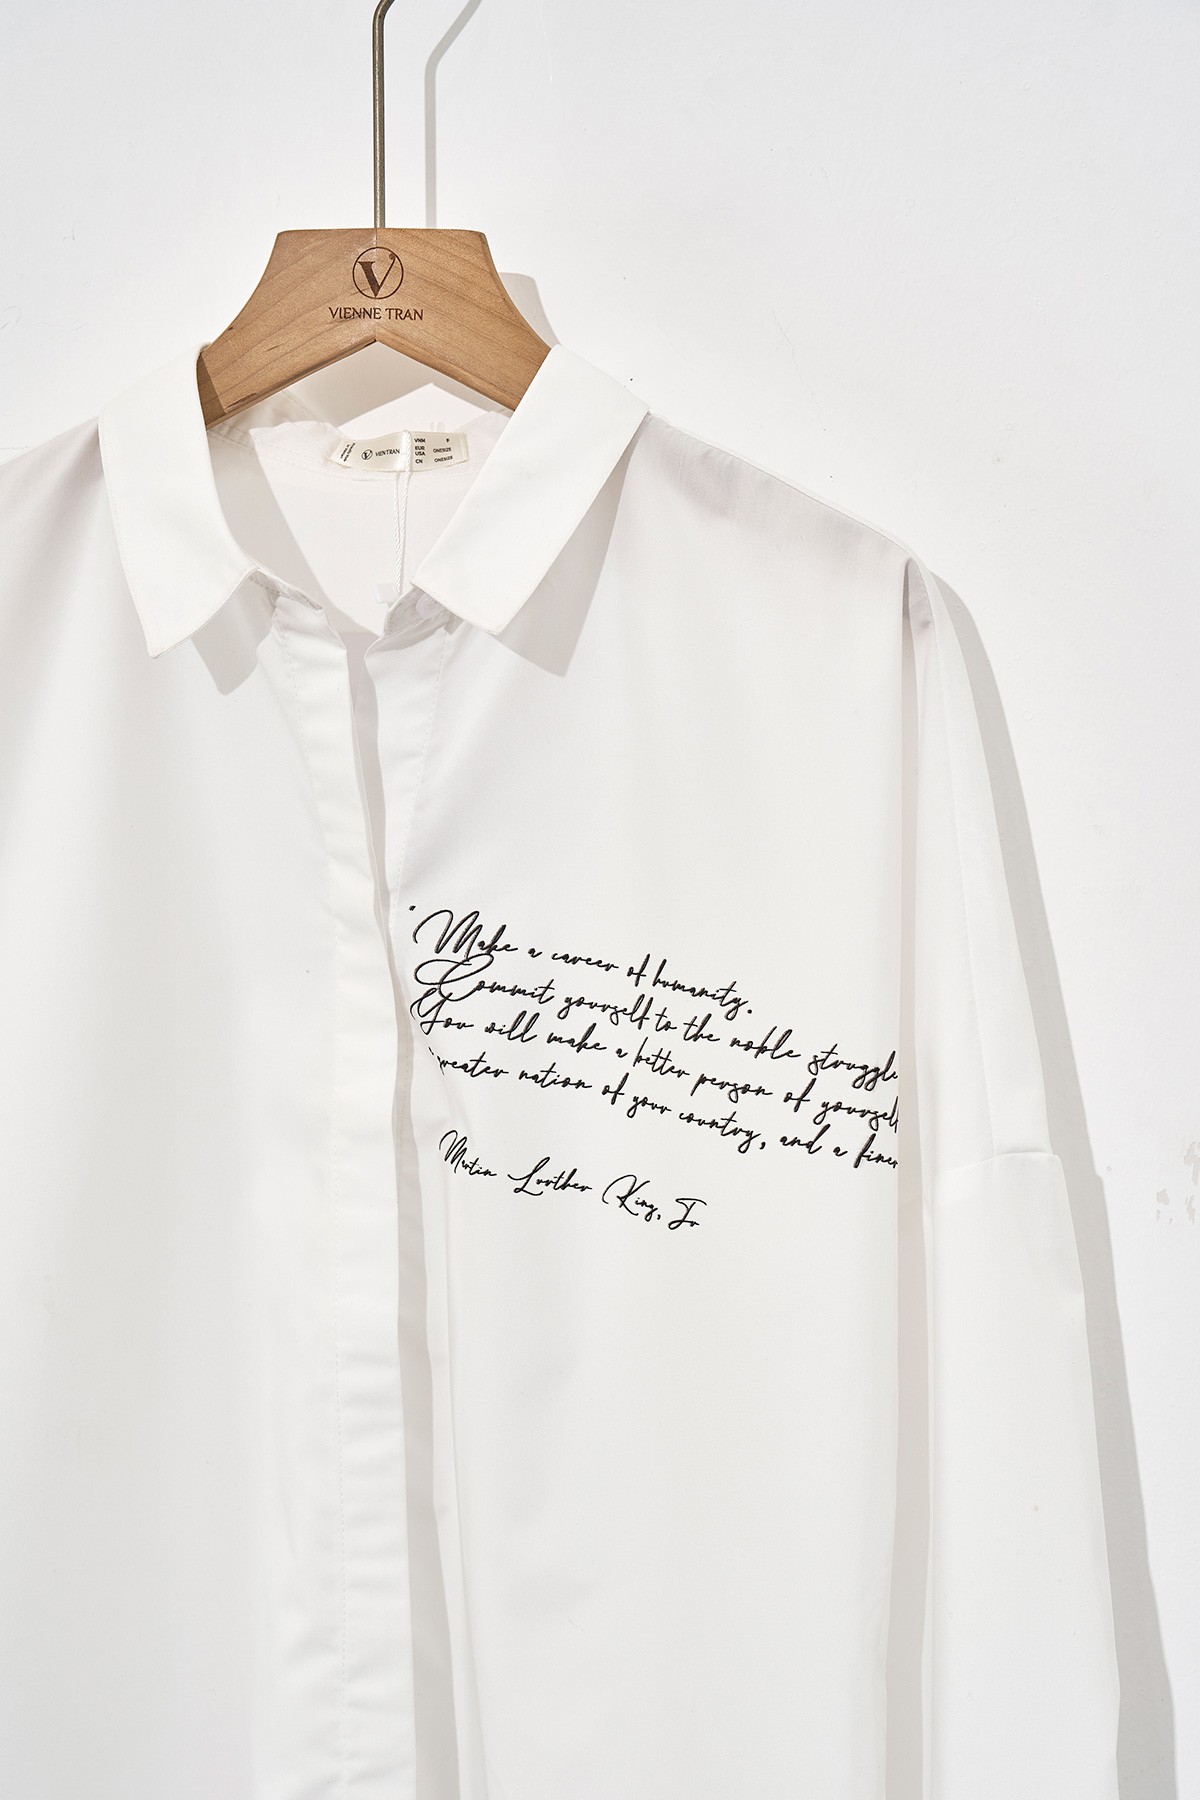 V
VIENNE TRAN
V VIEN TRAN
VNM F
EUR
USA ONESIZE
CN ONESIZE
"Make a career of humanity.
Commit yourself to the noble struggle
You will make a better person of yourself
greater nation of your country, and a finer
Martin Luther King, Jr